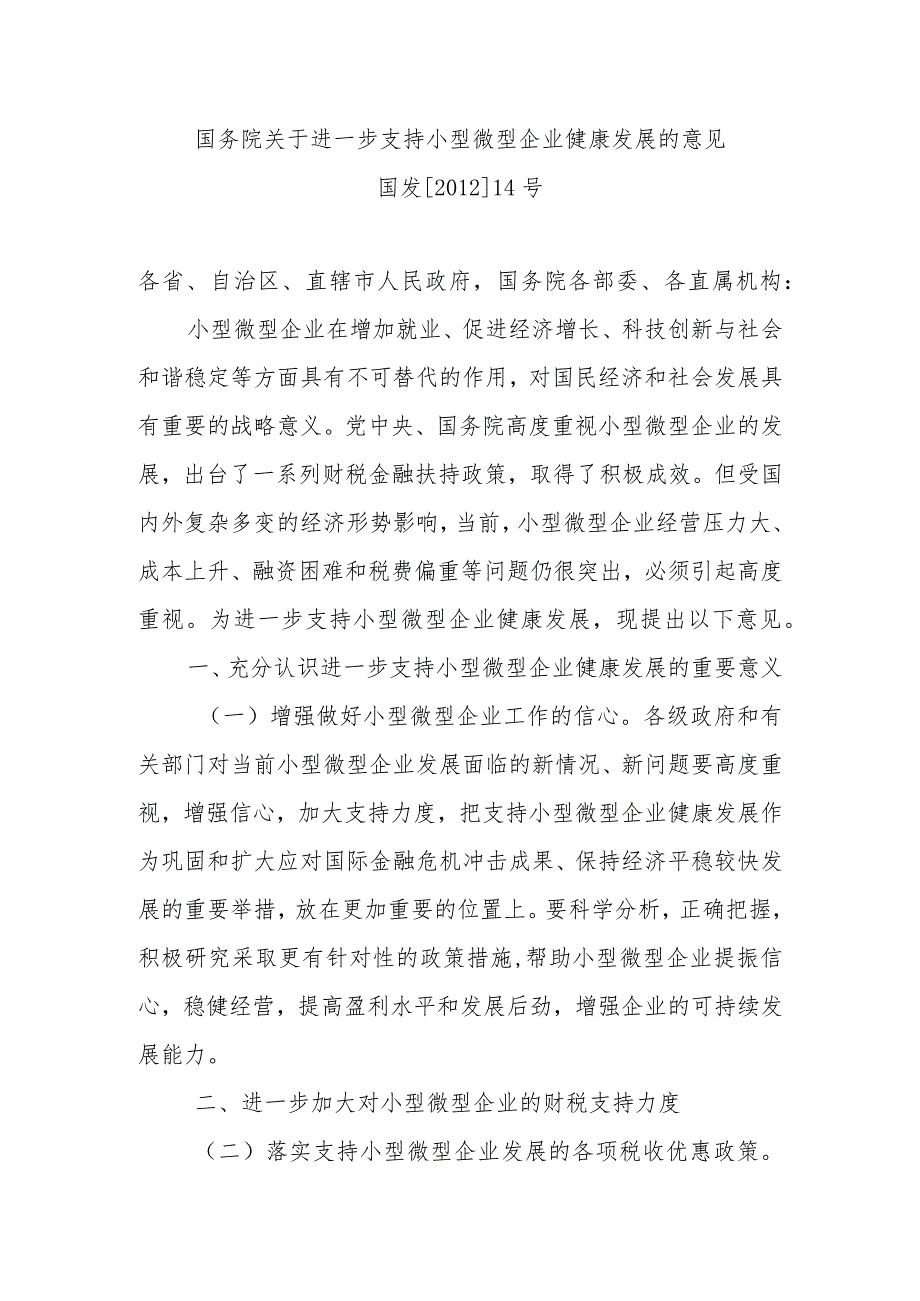 国务院关于进一步支持小型微型企业健康发展的意见
国发[2012]14 号
各省、自治区、直辖市人民政府，国务院各部委、各直属机构：
小型微型企业在增加就业、促进经济增长、科技创新与社会
和谐稳定等方面具有不可替代的作用，对国民经济和社会发展具
有重要的战略意义。党中央、国务院高度重视小型微型企业的发
展，出台了一系列财税金融扶持政策，取得了积极成效。但受国
内外复杂多变的经济形势影响，当前，小型微型企业经营压力大、
成本上升、融资困难和税费偏重等问题仍很突出，必须引起高度
重视。为进一步支持小型微型企业健康发展，现提出以下意见。
一、充分认识进一步支持小型微型企业健康发展的重要意义
（一）增强做好小型微型企业工作的信心。各级政府和有
关部门对当前小型微型企业发展面临的新情况、新问题要高度重
视，增强信心，加大支持力度，把支持小型微型企业健康发展作
为巩固和扩大应对国际金融危机冲击成果、保持经济平稳较快发
展的重要举措，放在更加重要的位置上。要科学分析，正确把握，
积极研究采取更有针对性的政策措施,帮助小型微型企业提振信
心，稳健经营，提高盈利水平和发展后劲，增强企业的可持续发
展能力。
二、进一步加大对小型微型企业的财税支持力度
（二）落实支持小型微型企业发展的各项税收优惠政策。